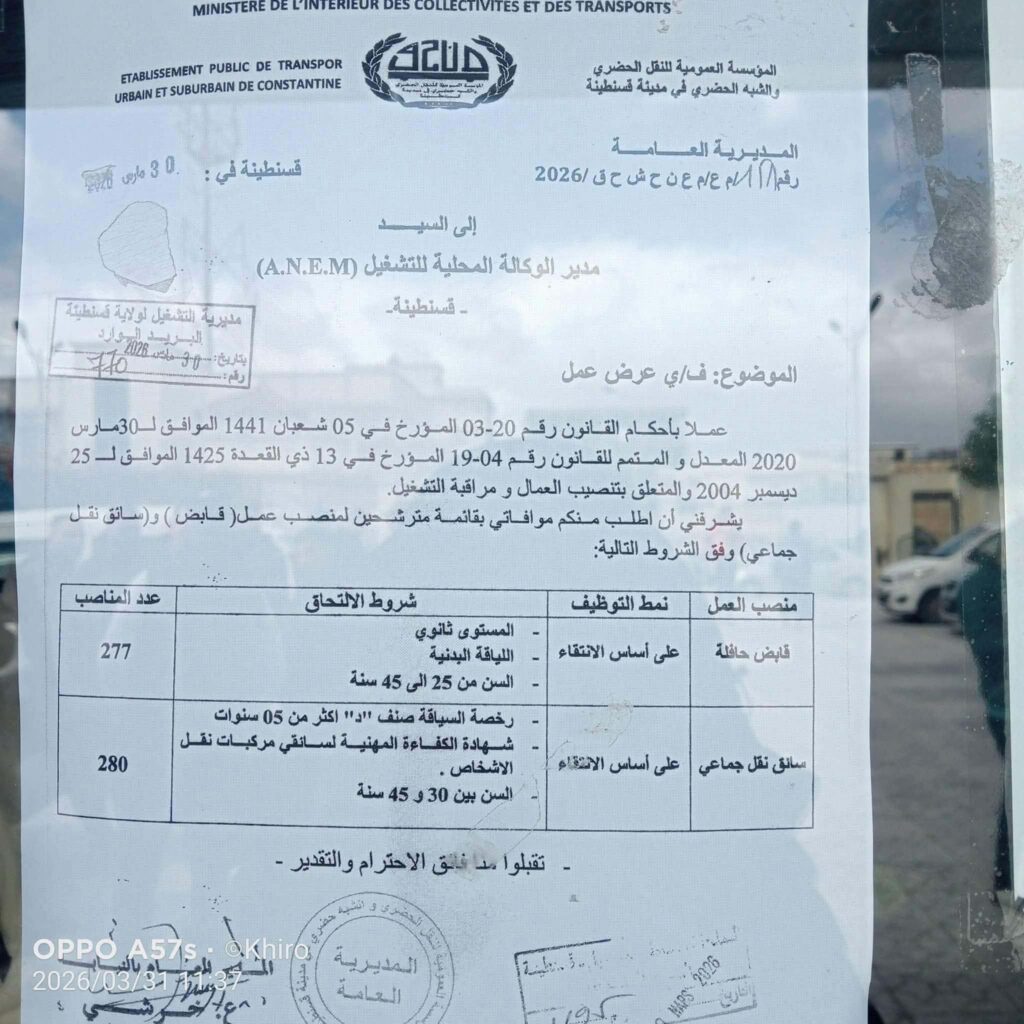 MINISTERE DE L'INTERIEUR DES COLLECTIVITES ET DES TRANSPORTS
ETABLISSEMENT PUBLIC DE TRANSPOR
URBAIN ET SUBURBAIN DE CONSTANTINE
المؤسسة العمومية للنقل الحضري
والشبه الحضري في مدينة قسنطينة
المديرية العامة
رقم/م ع/م ع ن ح ش ح ق /2026
قسنطينة في : 30 مارس 2026
إلى السيد
مدير الوكالة المحلية للتشغيل (A.N.E.M)
- قسنطينة-
مديرية التشغيل لولاية قسنطينة
البريد الوارد
بتاريخ: 30 مارس 2026
رقم: 770
الموضوع: ف/ي عرض عمل
عملا بأحكام القانون رقم 20-03 المؤرخ في 05 شعبان 1441 الموافق لـ30مارس
2020 المعدل و المتمم للقانون رقم 04-19 المؤرخ في 13 ذي القعدة 1425 الموافق لـ 25
ديسمبر 2004 والمتعلق بتنصيب العمال و مراقبة التشغيل.
يشرفني أن اطلب منكم موافاتي بقائمة مترشحين لمنصب عمل( قابض ) و(سائق نقل
جماعي) وفق الشروط التالية:
منصب العمل نمط التوظيف شروط الالتحاق عدد المناصب
قابض حافلة على أساس الانتقاء
- المستوى ثانوي
- اللياقة البدنية
- السن من 25 الى 45 سنة
277
سائق نقل جماعي على أساس الانتقاء
- رخصة السياقة صنف "د" اكثر من 05 سنوات
- شهادة الكفاءة المهنية لسائقي مركبات نقل
الاشخاص .
- السن بين 30 و 45 سنة
280
- تقبلوا منا فائق الاحترام والتقدير -
المديرية
العامة
MARS 2026
OPPO A57s · ©Khiro
2026/03/31 11:37